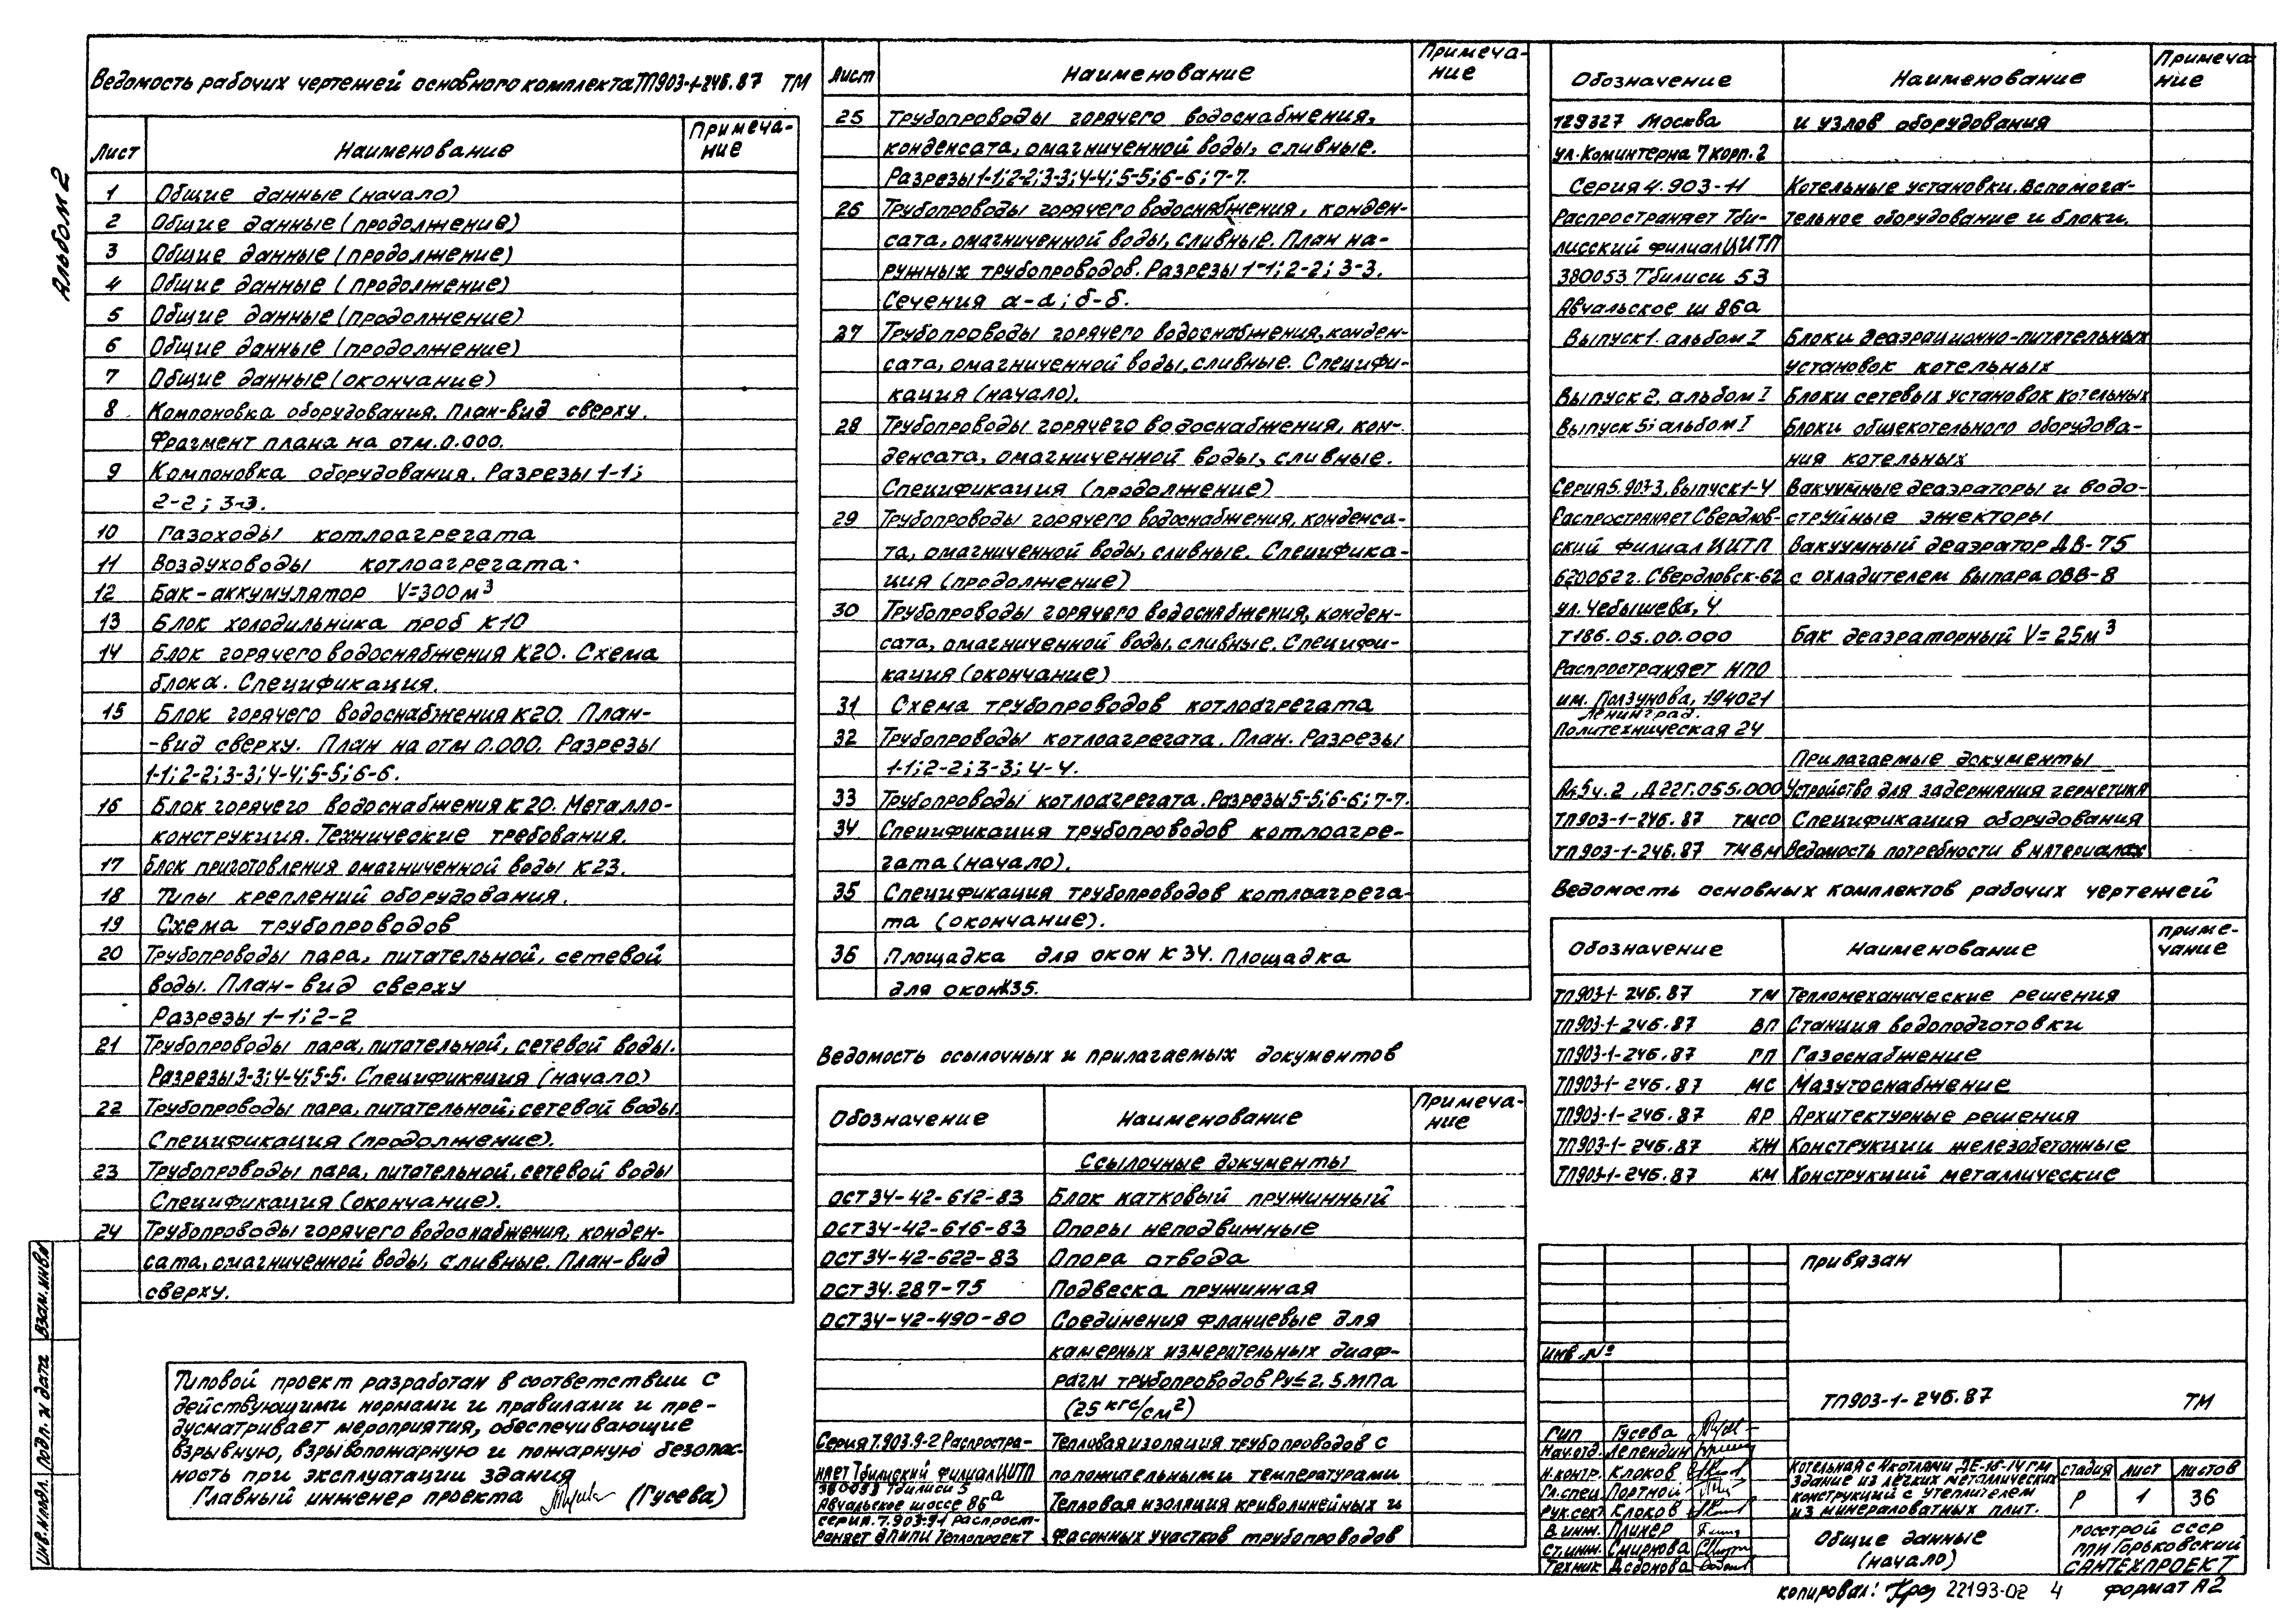 Альбом 2
Ведомость рабочих чертежей основного комплекта ТП903-1-246.87 ТМ
Лист Наименование Примеча-
ние
1 Общие данные (начало)
2 Общие данные (продолжение)
3 Общие данные (продолжение)
4 Общие данные (продолжение)
5 Общие данные (продолжение)
6 Общие данные (продолжение)
7 Общие данные (окончание)
8 Компоновка оборудования. План-вид сверху.
Фрагмент плана на отм. 0.000.
9 Компоновка оборудования. Разрезы 1-1;
2-2; 3-3.
10 Газоходы котлоагрегата
11 Воздуховоды котлоагрегата.
12 Бак-аккумулятор V=300м³
13 Блок холодильника проб К10
14 Блок горячего водоснабжения К20. Схема
блока. Спецификация.
15 Блок горячего водоснабжения К20. План-
-вид сверху. План на отм 0.000. Разрезы
1-1; 2-2; 3-3; 4-4; 5-5; 6-6.
16 Блок горячего водоснабжения К20. Металло-
конструкция. Технические требования.
17 Блок приготовления омагниченной воды К23.
18 Типы креплений оборудования.
19 Схема трубопроводов
20 Трубопроводы пара, питательной, сетевой
воды. План-вид сверху
Разрезы 1-1; 2-2
21 Трубопроводы пара, питательной, сетевой воды.
Разрезы 3-3; 4-4; 5-5. Спецификация (начало)
22 Трубопроводы пара, питательной, сетевой воды.
Спецификация (продолжение).
23 Трубопроводы пара, питательной, сетевой воды
Спецификация (окончание).
24 Трубопроводы горячего водоснабжения, конден-
сата, омагниченной воды, сливные. План-вид
сверху.
Типовой проект разработан в соответствии с
действующими нормами и правилами и пре-
дусматривает мероприятия, обеспечивающие
взрывную, взрывопожарную и пожарную безопас-
ность при эксплуатации здания
Главный инженер проекта (Гусева)
Инв.№подл. Подп. и дата Взам.инв№
Лист Наименование Примеча-
ние
25 Трубопроводы горячего водоснабжения,
конденсата, омагниченной воды, сливные.
Разрезы 1-1; 2-2; 3-3; 4-4; 5-5; 6-6; 7-7.
26 Трубопроводы горячего водоснабжения, конден-
сата, омагниченной воды, сливные. План на-
ружных трубопроводов. Разрезы 1-1; 2-2; 3-3.
Сечения а-а; б-б.
27 Трубопроводы горячего водоснабжения, конден-
сата, омагниченной воды, сливные. Специфи-
кация (начало).
28 Трубопроводы горячего водоснабжения, кон-
денсата, омагниченной воды, сливные.
Спецификация (продолжение)
29 Трубопроводы горячего водоснабжения, конденса-
та, омагниченной воды, сливные. Специфика-
ция (продолжение)
30 Трубопроводы горячего водоснабжения, конден-
сата, омагниченной воды, сливные. Специфи-
кация (окончание)
31 Схема трубопроводов котлоагрегата
32 Трубопроводы котлоагрегата. План. Разрезы
1-1; 2-2; 3-3; 4-4.
33 Трубопроводы котлоагрегата. Разрезы 5-5; 6-6; 7-7.
34 Спецификация трубопроводов котлоагре-
гата (начало).
35 Спецификация трубопроводов котлоагрега-
та (окончание).
36 Площадка для окон К34. Площадка
для окон К35.
Ведомость ссылочных и прилагаемых документов
Обозначение Наименование Примеча-
ние
Ссылочные документы
ОСТ34-42-612-83 Блок катковый пружинный
ОСТ34-42-616-83 Опоры неподвижные
ОСТ34-42-622-83 Опора отвода
ОСТ34.287-75 Подвеска пружинная
ОСТ34-42-490-80 Соединения фланцевые для
камерных измерительных диаф-
рагм трубопроводов Ру≤2.5МПа
(25 кгс/см²)
Серия 7.903.9-2 Распростра- Тепловая изоляция трубопроводов с
няет Тбилиский филиал ЦИТП положительными температурами
380053 Тбилиси 5
Авчальское шоссе 86а Тепловая изоляция криволинейных и
серия.7.903.9-1 Распрост-
раняет ВНИПИ Теплопроект фасонных участков трубопроводов
Обозначение Наименование Примеча-
ние
129327 Москва и узлов оборудования
ул. Коминтерна 7 корп. 2
Серия 4.903-11 Котельные установки. Вспомога-
Распространяет Тби- тельное оборудование и блоки.
лисский филиал ЦИТП
380053 Тбилиси 53
Авчальское ш 86а
Выпуск 1. альбом I Блоки деаэрационно-питательных
установок котельных
Выпуск 2, альбом I Блоки сетевых установок котельных
Выпуск 5; альбом I Блоки общекотельного оборудова-
ния котельных
Серия 5.903-3, выпуск 1-4 Вакуумные деаэраторы и водо-
Распространяет Свердлов- струйные эжекторы
ский филиал ЦИТП Вакуумный деаэратор ДВ-75
620062 г. Свердловск-62 с охладителем выпара ОВВ-8
ул. Чебышева, 4
Т186.05.00.000 Бак деаэраторный V=25м³
Распространяет НПО
им. Ползунова, 194021
Ленинград.
Политехническая 24
Прилагаемые документы
Ал5ч.2, Д22Г.055.000 Устройство для задержания герметика
ТП903-1-246.87 ТМСО Спецификация оборудования
ТП903-1-246.87 ТМВМ Ведомость потребности в материалах
Ведомость основных комплектов рабочих чертежей
Обозначение Наименование Приме-
чание
ТП903-1-246.87 ТМ Тепломеханические решения
ТП903-1-246.87 ВП Станция водоподготовки
ТП903-1-246.87 ГП Газоснабжение
ТП903-1-246.87 МС Мазутоснабжение
ТП903-1-246.87 АР Архитектурные решения
ТП903-1-246.87 КЖ Конструкции железобетонные
ТП903-1-246.87 КМ Конструкций металлические
Привязан
Инв. №
ТП903-1-246.87 ТМ
ГИП Гусева
Нач.отд. Лепендин
Н.контр. Клоков
Гл.спец Портной
Рук.сект Клоков
В.инж. Плинер
Ст.инж. Смирнова
Техник
Котельная с 4 котлами ДЕ-16-14ГМ
Здание из легких металлических
конструкций с утеплителем
из минераловатных плит.
Стадия Лист Листов
Р 1 36
Общие данные
(начало)
Госстрой СССР
ГПИ Горьковский
САНТЕХПРОЕКТ
Копировал: 22193-02 4 формат А2